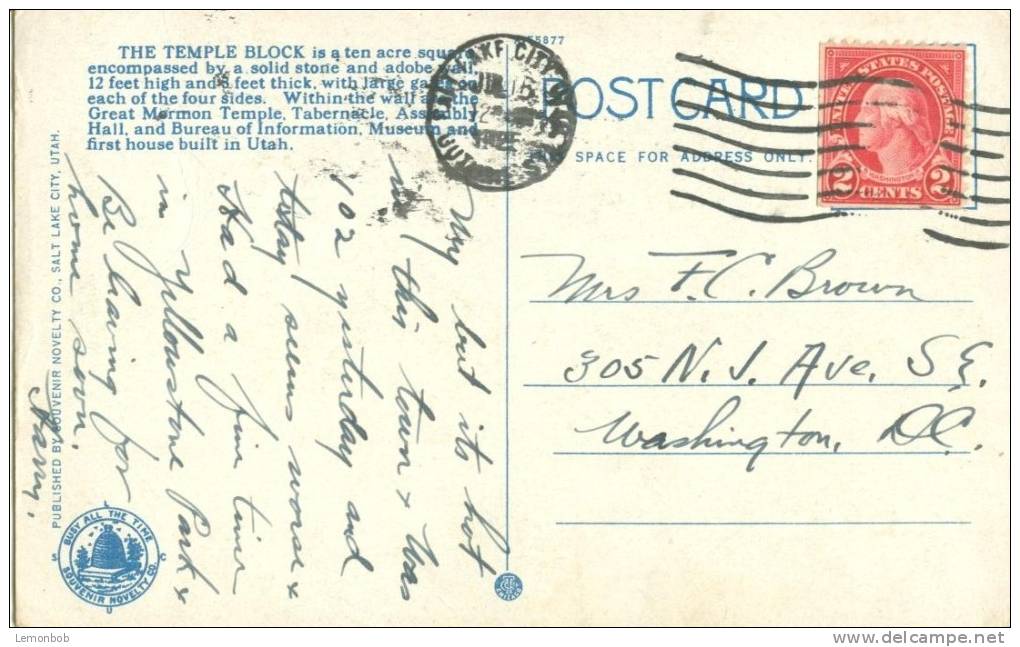 THE TEMPLE BLOCK is a ten acre square
encompassed by a solid stone and adobe wall,
12 feet high and 3 feet thick, with large gates on
each of the four sides. Within the wall are the
Great Mormon Temple, Tabernacle, Assembly
Hall, and Bureau of Information, Museum and
first house built in Utah.
My but its hot
in this town & was
102 yesterday and
today seems worse &
Had a fine time
in Yellowstone Park &
Be leaving for
home soon.
Harry.
PUBLISHED BY SOUVENIR NOVELTY CO., SALT LAKE CITY, UTAH.
BUSY ALL THE TIME
SOUVENIR NOVELTY CO.
S L C U
55877
POST CARD
THIS SPACE FOR ADDRESS ONLY.
SALT LAKE CITY
JUL 15
UTAH
UNITED STATES POSTAGE
WASHINGTON
2 CENTS 2
Mrs F. C. Brown
305 N. J. Ave, S E.
Washington, D.C.
Lemonbob
www.delcampe.net